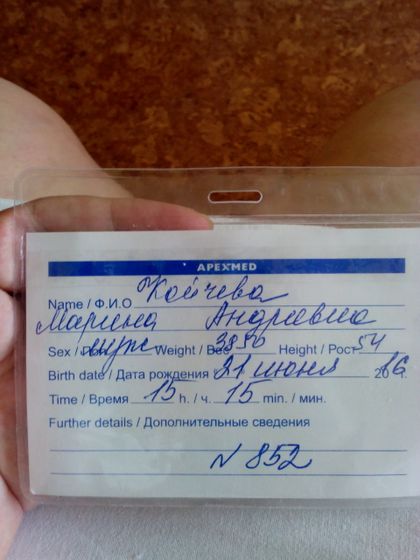 APEXMED
Name / Ф.И.О Койчева
Марина Андреевна
Sex / Пол муж Weight / Вес 3850 Height / Рост 54
Birth date / Дата рождения 21 июня 2016
Time / Время 15 h. / ч. 15 min. / мин.
Further details / Дополнительные сведения
N 852